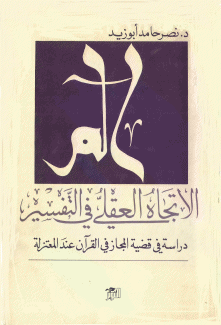 د. نصر حامد أبو زيد
الاتجاه العقلي في التفسير
دراسة في قضية المجاز في القرآن عند المعتزلة